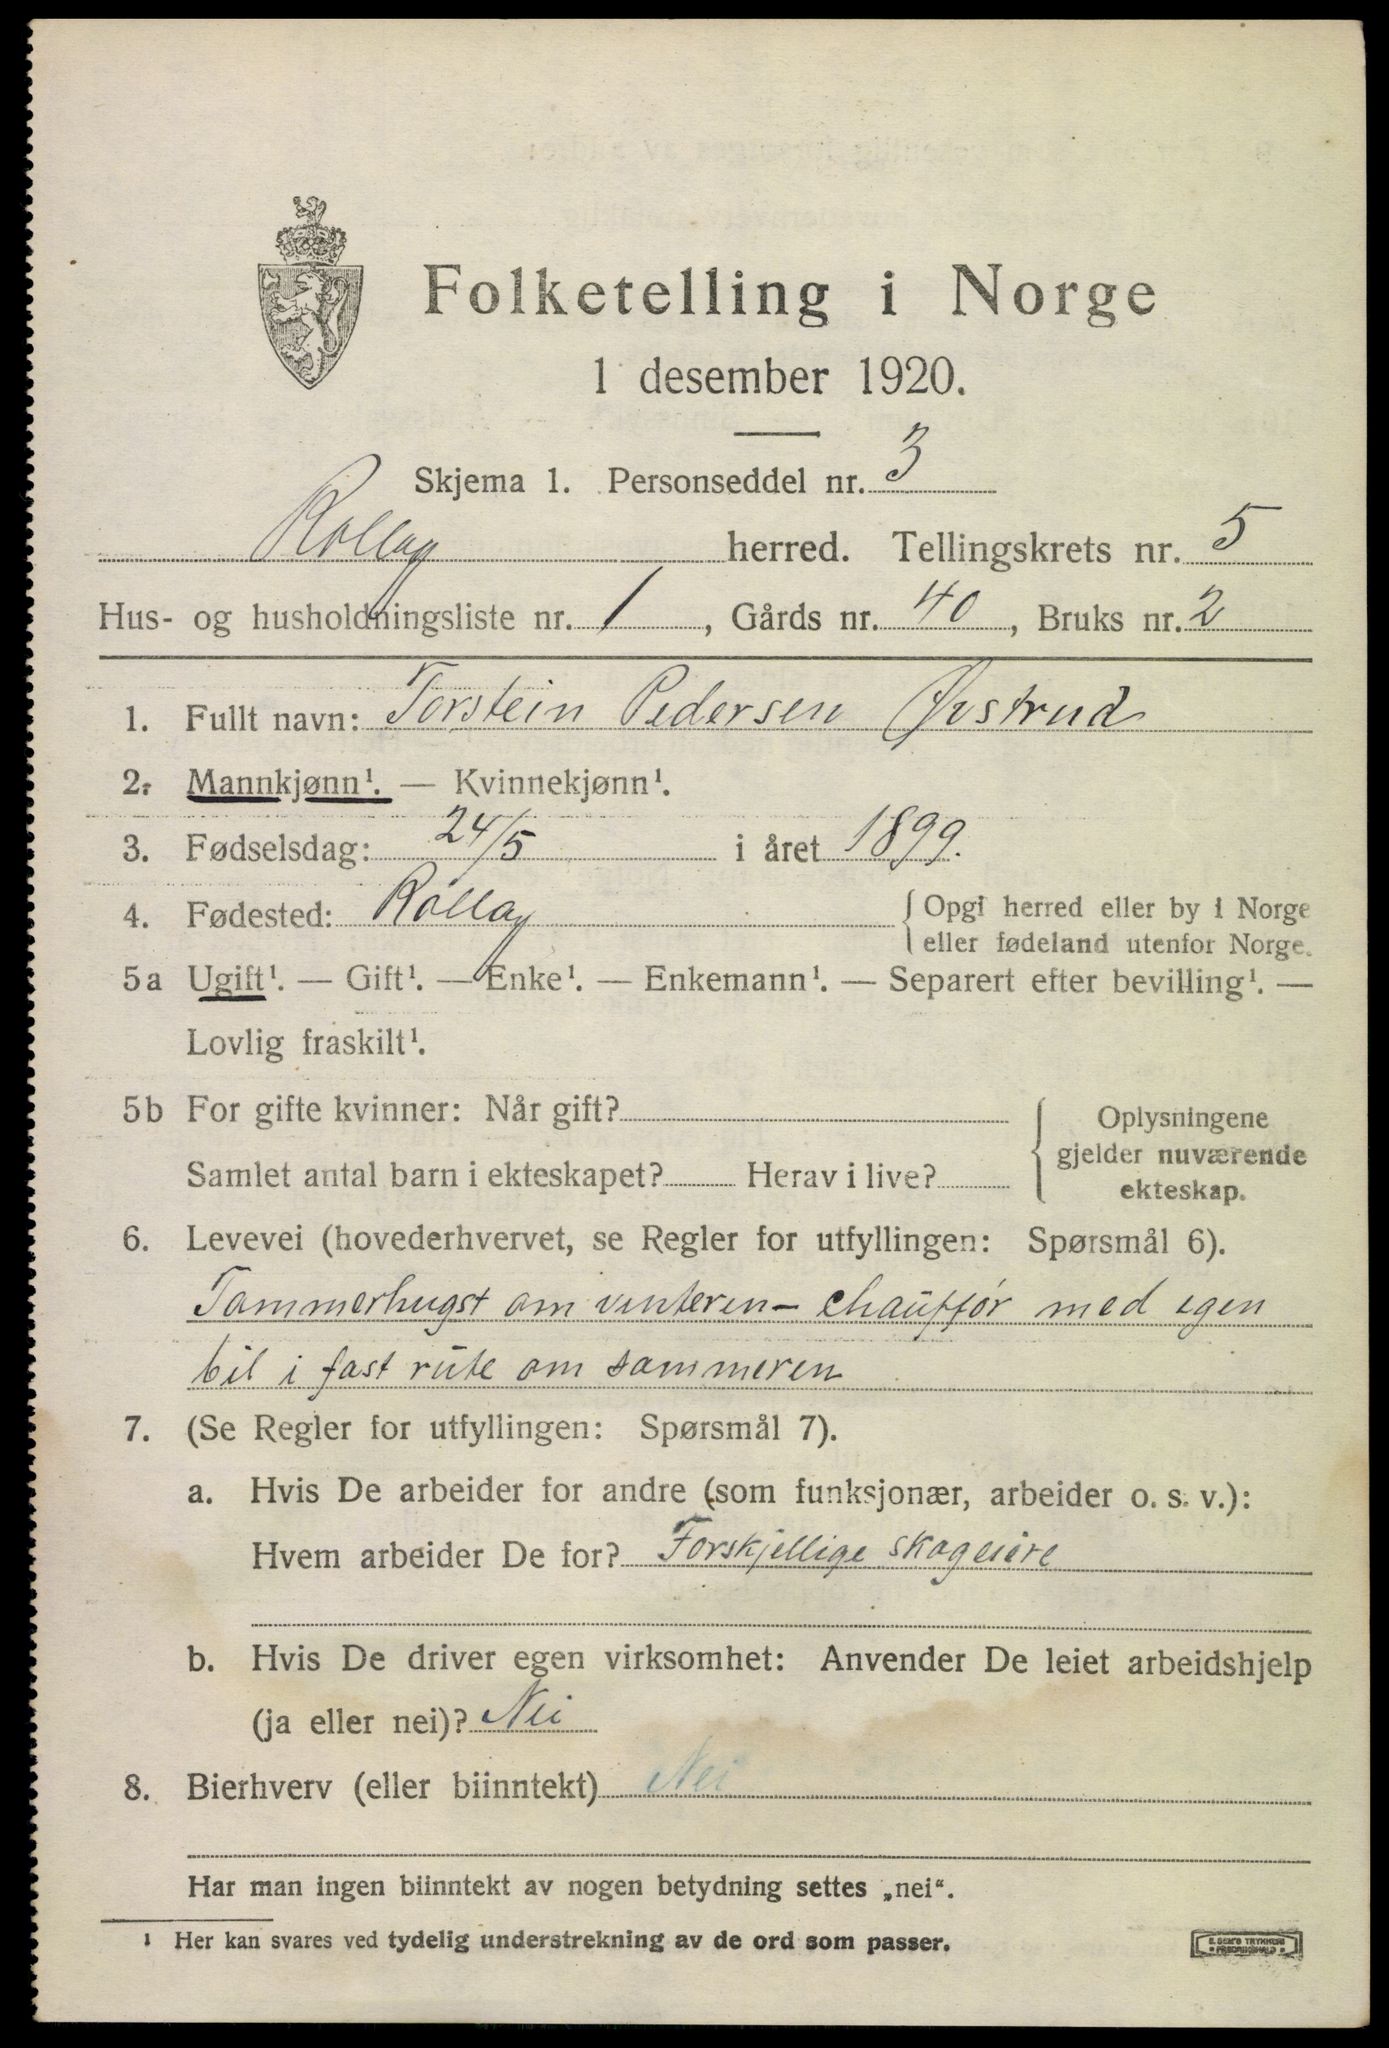 Folketelling i Norge
1 desember 1920.
Skjema 1. Personseddel nr. 3
Rollag herred. Tellingskrets nr. 5
Hus- og husholdningsliste nr. 1, Gårds nr. 40, Bruks nr. 2
1. Fullt navn: Torstein Pedersen Øvstrud
2. Mannkjønn¹. — Kvinnekjønn¹.
3. Fødselsdag: 24/5 i året 1899.
4. Fødested: Rollag { Opgi herred eller by i Norge
eller fødeland utenfor Norge.
5a Ugift¹. — Gift¹. — Enke¹. — Enkemann¹. — Separert efter bevilling¹. —
Lovlig fraskilt¹.
5b For gifte kvinner: Når gift?
Samlet antal barn i ekteskapet? Herav i live?
{ Oplysningene
gjelder nuværende
ekteskap.
6. Levevei (hovederhvervet, se Regler for utfyllingen: Spørsmål 6).
Tømmerhugst om vinteren - chauffør med egen
bil i fast rute om sommeren
7. (Se Regler for utfyllingen: Spørsmål 7).
a. Hvis De arbeider for andre (som funksjonær, arbeider o. s. v.):
Hvem arbeider De for? Forskjellige skogeiere
b. Hvis De driver egen virksomhet: Anvender De leiet arbeidshjelp
(ja eller nei)? Nei
8. Bierhverv (eller biinntekt) Nei
Har man ingen biinntekt av nogen betydning settes „nei“.
¹ Her kan svares ved tydelig understrekning av de ord som passer.